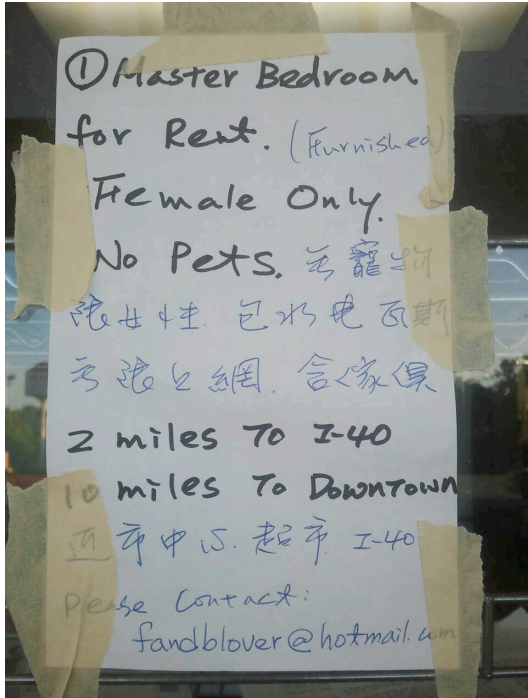 ① Master Bedroom
for Rent. (Furnished)
Female Only.
No Pets. 无寵物
限女性. 包水电瓦斯
无限上網. 含傢俱
2 miles To I-40
10 miles To DownTown
近市中心. 超市. I-40
Pease Contact:
fandblover@hotmail.com